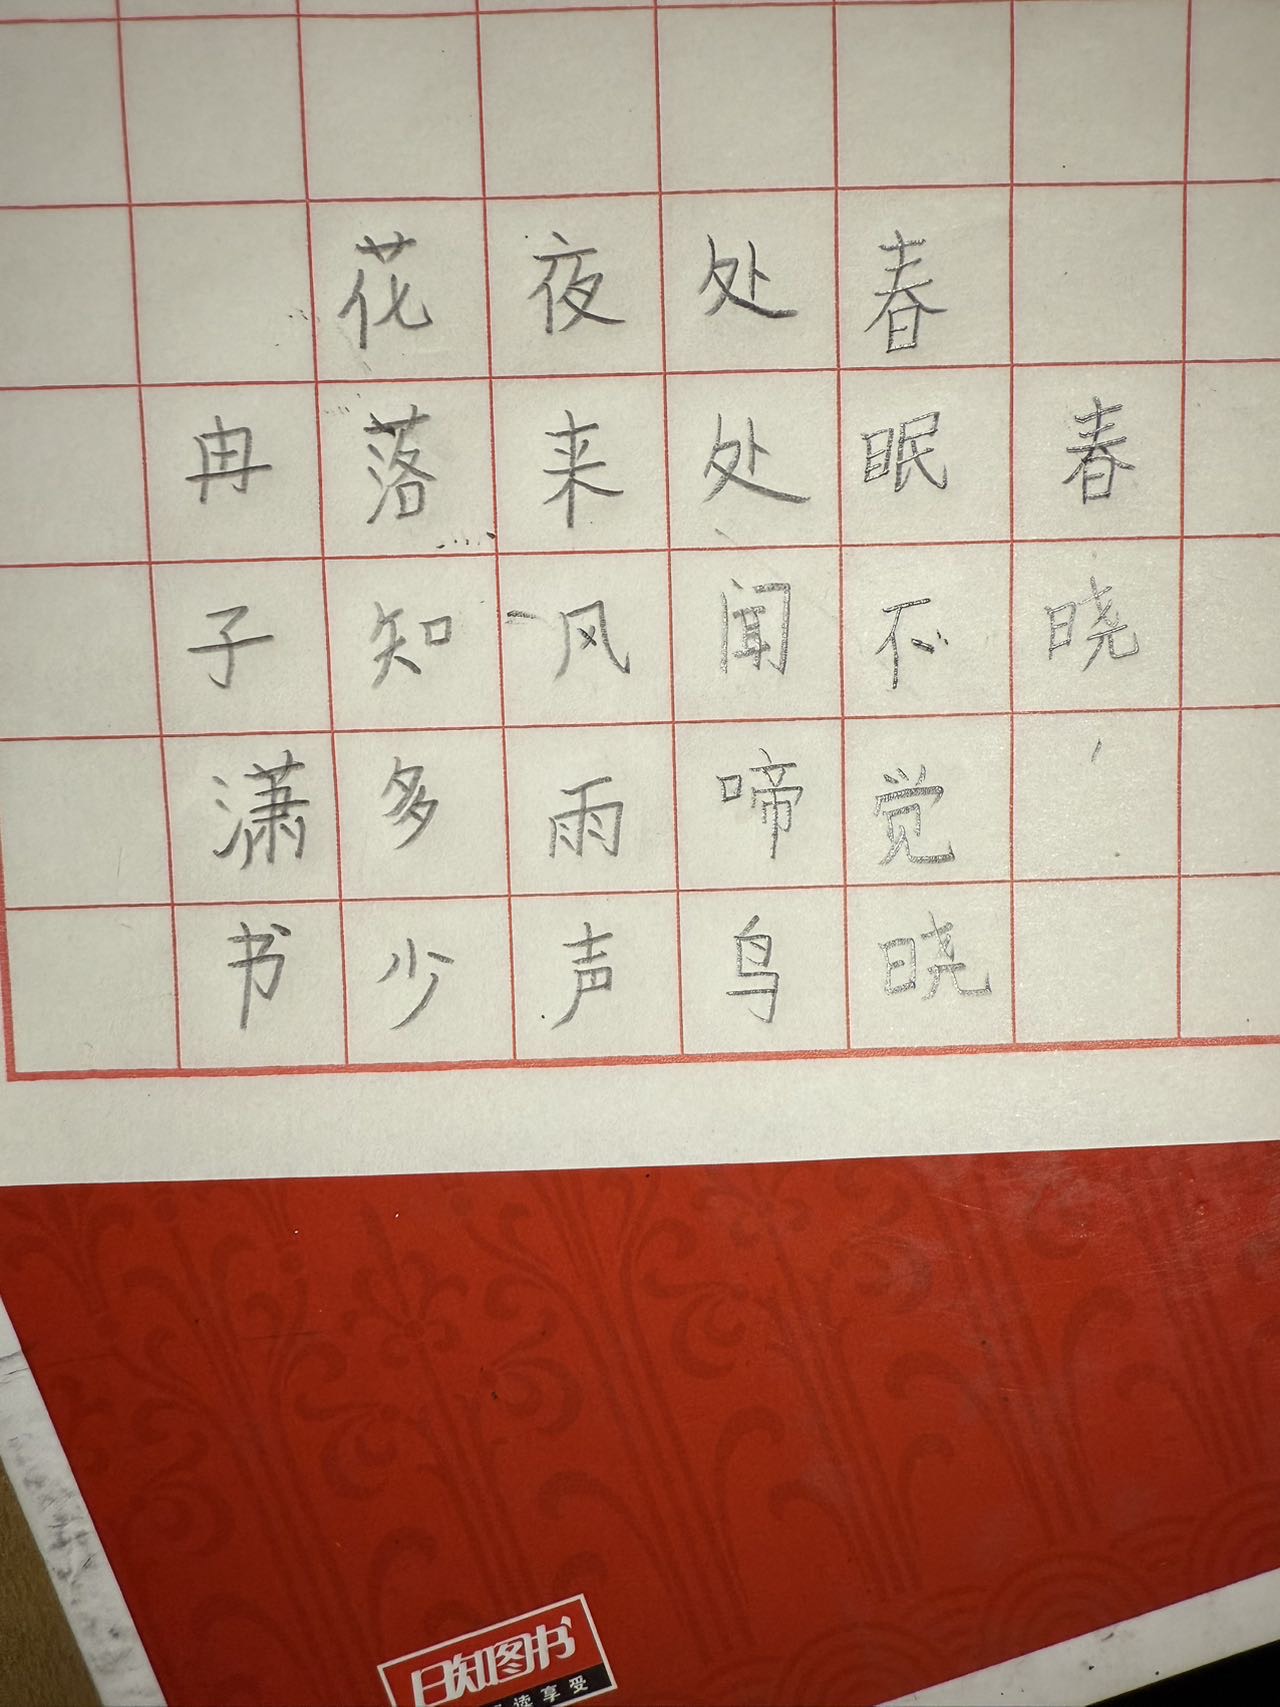 春晓
春眠不觉晓
处处闻啼鸟
夜来风雨声
花落知多少
冉子潇书
日知图书
读享受